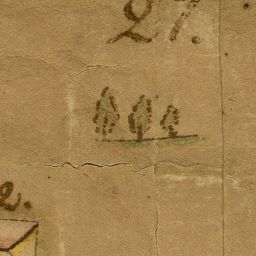 27.
2.